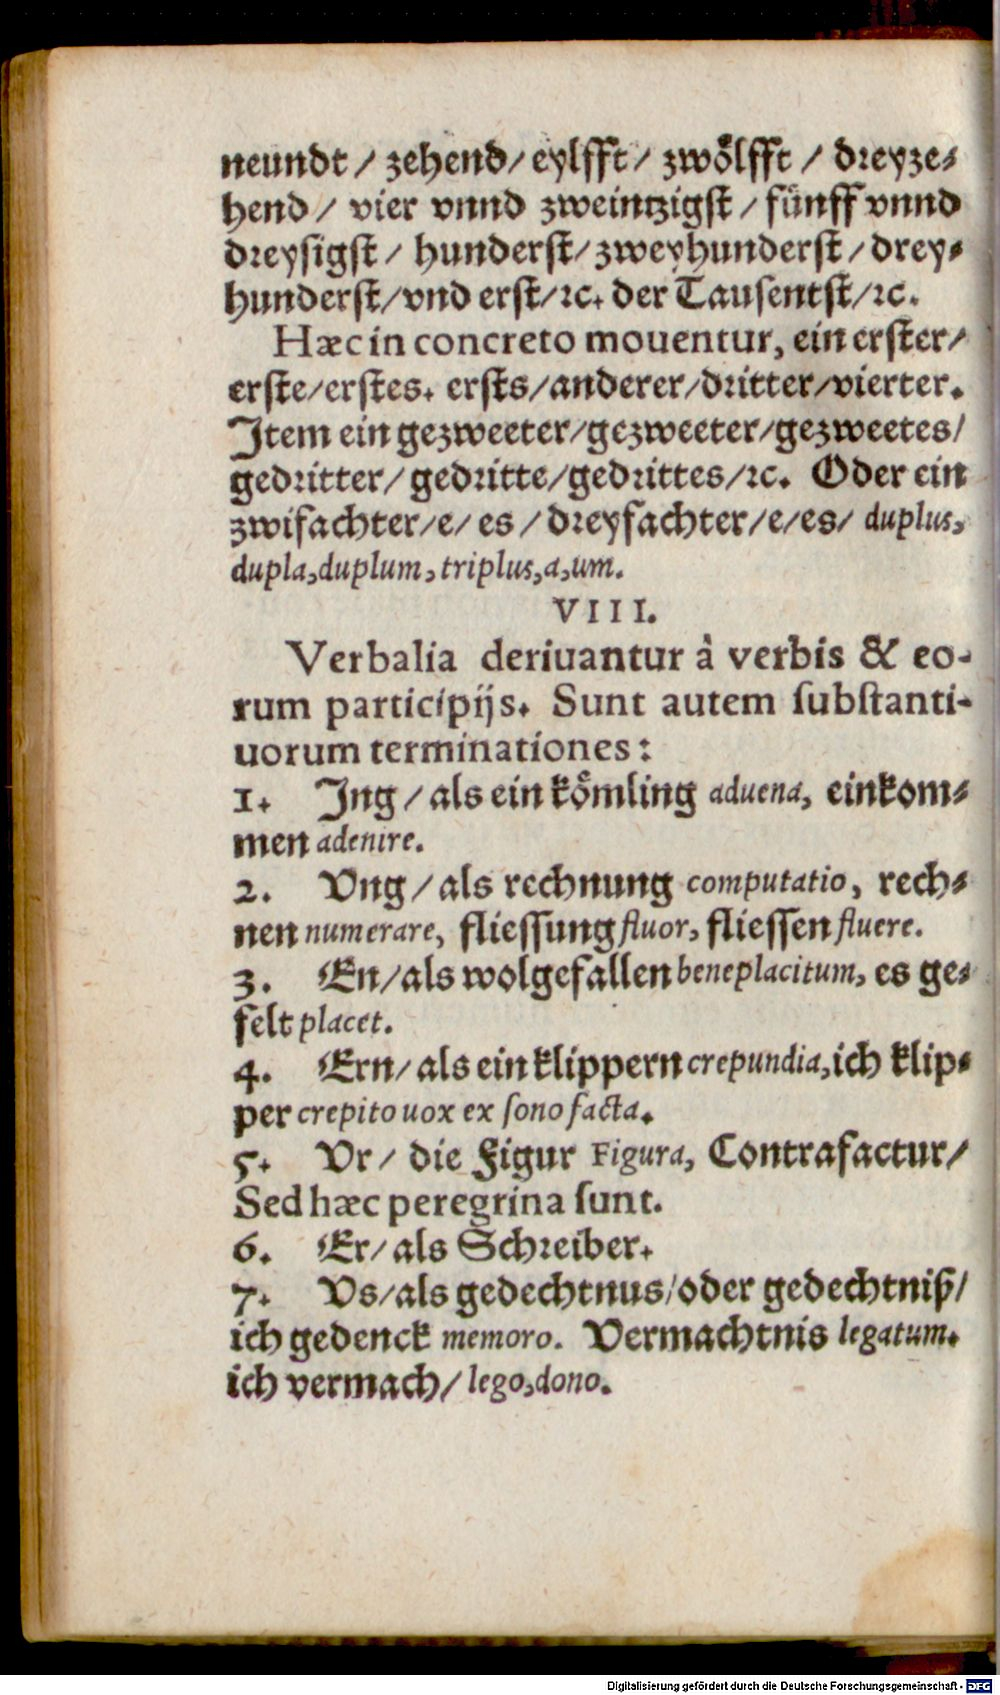 neundt / zehend / eylfft / zwoͤlfft / dreyze⸗
hend / vier vnnd zweintzigst / fuͤnff vnnd
dreysigst / hunderst / zweyhunderst / drey⸗
hunderst / vnd erst / ꝛc. der Tausentst / ꝛc.
Hæc in concreto mouentur, ein erster /
erste / erstes. ersts / anderer / dritter / vierter.
Jtem ein gezweeter / gezweeter / gezweetes /
gedritter / gedritte / gedrittes / ꝛc. Oder ein
zwifachter / e / es / dreyfachter / e / es / duplus,
dupla, duplum, triplus, a, um.
VIII.
Verbalia deriuantur à verbis & eo-
rum participijs. Sunt autem ſubſtanti-
uorum terminationes:
1. Jng / als ein koͤmling aduena, einkom⸗
men adenire.
2. Vng / als rechnung computatio, rech⸗
nen numerare, fliessung fluor, fliessen fluere.
3. En / als wolgefallen beneplacitum, es ge⸗
felt placet.
4. Ern / als ein klippern crepundia, ich klip⸗
per crepito uox ex ſono facta.
5. Vr / die Figur Figura, Contrafactur /
Sed hæc peregrina ſunt.
6. Er / als Schreiber.
7. Vs / als gedechtnus / oder gedechtniß /
ich gedenck memoro. Vermachtnis legatum.
ich vermach / lego, dono.
Digitalisierung gefördert durch die Deutsche Forschungsgemeinschaft - DFG